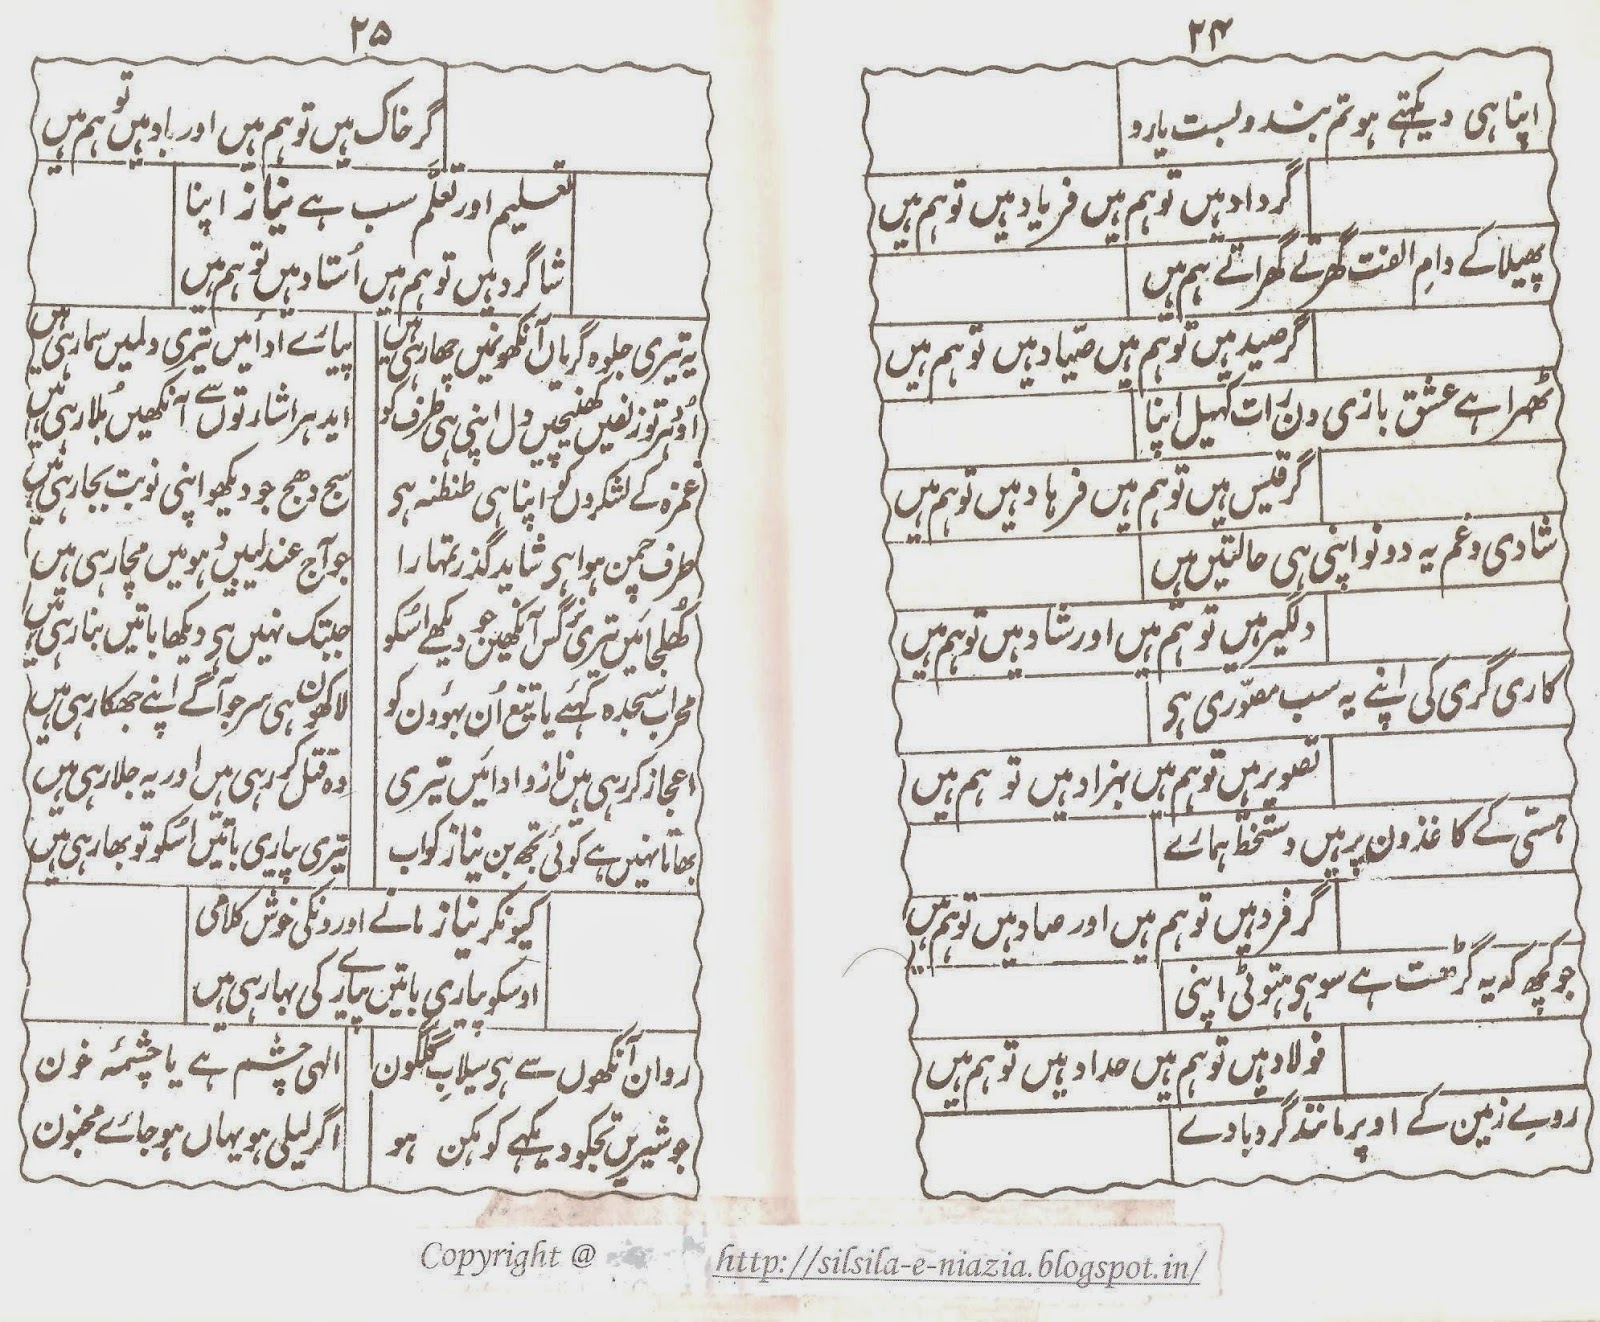 ۲۴
اپنا ہی دیکھتے ہو تم بند و بست یارو
گر داد ہیں تو ہم ہیں فریاد ہیں تو ہم ہیں
پھیلا کے دامِ الفت گھرتے گھراتے ہم ہیں
گر صید ہیں تو ہم ہیں صیّاد ہیں تو ہم ہیں
ٹھہرا ہے عشق بازی دن رات کھیل اپنا
گر قیس ہیں تو ہم ہیں فرہاد ہیں تو ہم ہیں
شادی و غم یہ دونو اپنی ہی حالتیں ہیں
دلگیر ہیں تو ہم ہیں اور شاد ہیں تو ہم ہیں
کاری گری کی اپنے یہ سب مصوّری ہی
تصویر ہیں تو ہم ہیں بہزاد ہیں تو ہم ہیں
ہستی کے کاغذون پر ہیں دستخط ہمارے
گر فرد ہیں تو ہم ہیں اور صاد ہیں تو ہم ہیں
جو کچھ کہ یہ گڑھت ہے سو ہی اپنی
فولاد ہیں تو ہم ہیں حداد ہیں تو ہم ہیں
روے زمین کے اوپر مانند گرد بادے
۲۵
گر خاک ہیں تو ہم ہیں اور باد ہیں تو ہم ہیں
تعلیم اور تعلّم سب ہے نیاز اپنا
شاگرد ہیں تو ہم ہیں اُستاد ہیں تو ہم ہیں
یہ تیری جلوہ گریاں آنکھونمیں چھا رہی ہیں
پیارے ادائیں تیری دلمیں سما رہی ہیں
اُودہر تو زلفیں کھینچیں دل اپنی ہی طرف کو
ایدہر اشارتوں سے آنکھیں بُلا رہی ہیں
غمزہ کے لشکروں کو اپنا ہی طنطنہ ہی
سج دھج جو دیکھو اپنی نوبت بجا رہی ہیں
طرف چمن ہوا ہی شاید گذر تمہارا
جو آج عندلیبیں دُہومیں مچا رہی ہیں
کُھلجائیں تیری نرگس آنکھین جو دیکھے اسکو
جبتک نہیں ہی دیکھا باتیں بنا رہی ہیں
محراب سجدہ کہئے یا تیغ اُن بہوون کو
لاکھون ہی سر جو آگے اپنے جھکا رہی ہیں
اعجاز کر رہی ہیں ناز و ادائیں تیری
وہ قتل کر رہی ہیں اور یہ جلا رہی ہیں
بھاتا نہیں ہے کوئی تجھ بن نیاز کو اب
تیری پیاری باتیں اسکو تو بھا رہی ہیں
کیونکر نیاز مانے اورونکی خوش کلامی
اوسکو پیاری باتین پیارے کی بہا رہی ہیں
روان آنکھوں سے ہی سیلابِ گلگون
الہی چشم ہے یا چشمۂ خون
جو شیریں تجکو دیکھے کوہکن ہو
اگر لیلی ہو یہاں ہو جائے مجنون
Copyright @
http://silsila-e-niazia.blogspot.in/